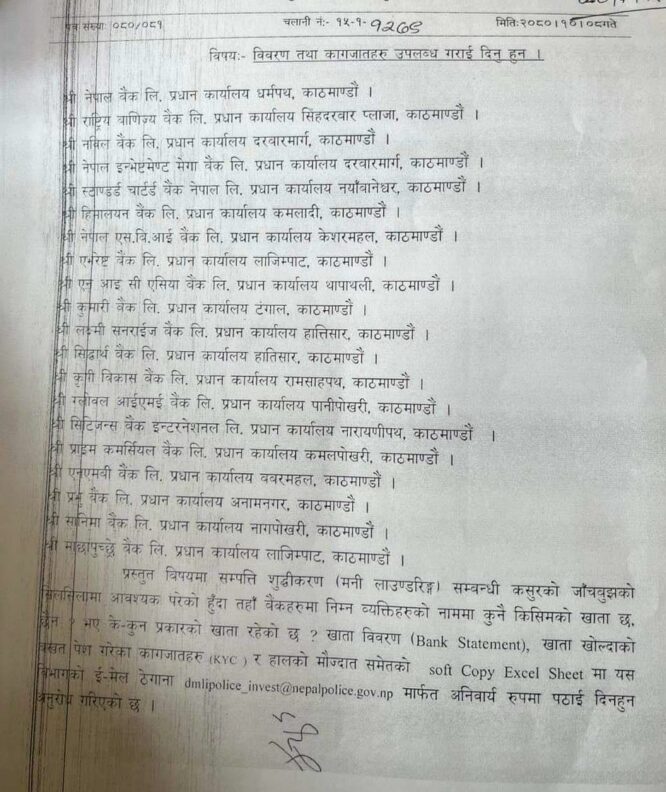 पत्र संख्याः ०८०/०८१ चलानी नं:- १५-१- १२७९ मितिः२०८०।१०।०८गते
विषयः- विवरण तथा कागजातहरु उपलब्ध गराई दिनु हुन ।
श्री नेपाल बैंक लि. प्रधान कार्यालय धर्मपथ, काठमाण्डौं ।
श्री राष्ट्रिय वाणिज्य बैंक लि. प्रधान कार्यालय सिंहदरवार प्लाजा, काठमाण्डौं ।
श्री नविल बैंक लि. प्रधान कार्यालय दरवारमार्ग, काठमाण्डौं ।
श्री नेपाल इन्भेष्टमेण्ट मेगा बैंक लि. प्रधान कार्यालय दरवारमार्ग, काठमाण्डौं ।
श्री स्टाण्डर्ड चार्टर्ड बैंक नेपाल लि. प्रधान कार्यालय नयाँवानेश्वर, काठमाण्डौं ।
श्री हिमालयन बैंक लि. प्रधान कार्यालय कमलादी, काठमाण्डौं ।
श्री नेपाल एस.बि.आई बैंक लि. प्रधान कार्यालय केशरमहल, काठमाण्डौं ।
श्री एभरेष्ट बैंक लि. प्रधान कार्यालय लाजिम्पाट, काठमाण्डौं ।
श्री एन आइ सी एसिया बैंक लि. प्रधान कार्यालय थापाथली, काठमाण्डौं ।
श्री कुमारी बैंक लि. प्रधान कार्यालय टंगाल, काठमाण्डौं ।
श्री लक्ष्मी सनराईज बैंक लि. प्रधान कार्यालय हात्तिसार, काठमाण्डौं ।
श्री सिद्धार्थ बैंक लि. प्रधान कार्यालय हातिसार, काठमाण्डौं ।
श्री कृषी विकास बैंक लि. प्रधान कार्यालय रामसाहपथ, काठमाण्डौं ।
श्री ग्लोवल आईएमई बैंक लि. प्रधान कार्यालय पानीपोखरी, काठमाण्डौं ।
श्री सिटिजन्स बैंक इन्टरनेशनल लि. प्रधान कार्यालय नारायणीपथ, काठमाण्डौं ।
श्री प्राइम कमर्सियल बैंक लि. प्रधान कार्यालय कमलपोखरी, काठमाण्डौं ।
श्री एनएमवी बैंक लि. प्रधान कार्यालय ववरमहल, काठमाण्डौं ।
श्री प्रभु बैंक लि. प्रधान कार्यालय अनामनगर, काठमाण्डौं ।
श्री सानिमा बैंक लि. प्रधान कार्यालय नागपोखरी, काठमाण्डौं ।
श्री माछापुच्छ्रे बैंक लि. प्रधान कार्यालय लाजिम्पाट, काठमाण्डौं ।
प्रस्तुत विषयमा सम्पत्ति शुद्धीकरण (मनी लाउण्डरिङ्ग) सम्बन्धी कसुरको जाँचवुझको
सिलसिलामा आवश्यक परेको हुँदा तहाँ बैंकहरुमा निम्न व्यक्तिहरुको नाममा कुनै किसिमको खाता छ,
छैन ? भए के-कुन प्रकारको खाता रहेको छ ? खाता विवरण (Bank Statement), खाता खोल्दाको
बखत पेश गरेका कागजातहरु (KYC) र हालको मौज्दात समेतको soft Copy Excel Sheet मा यस
विभागको ई-मेल ठेगाना dmlipolice_invest@nepalpolice.gov.np मार्फत अनिवार्य रुपमा पठाई दिनहुन
अनुरोध गरिएको छ ।